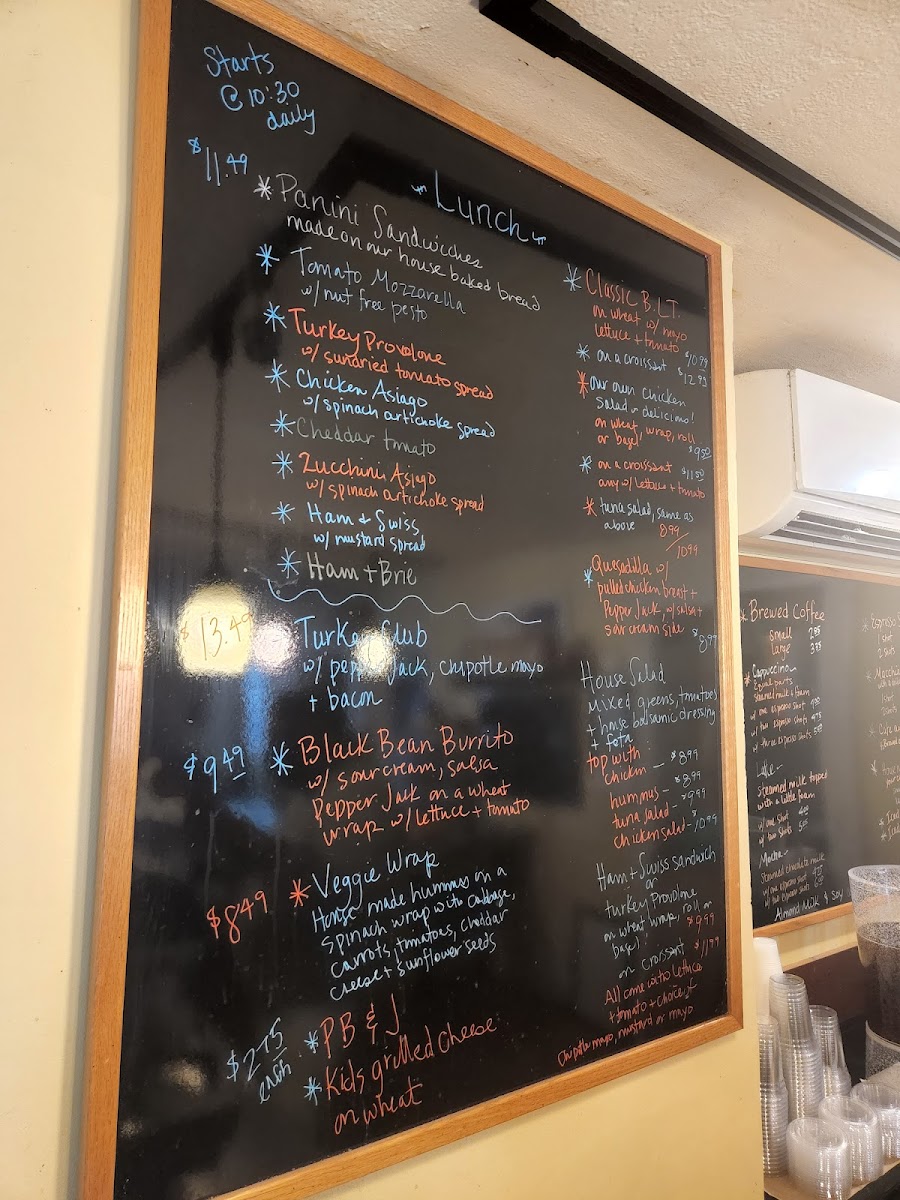 Starts
@ 10:30
daily
$11.49
Lunch
* Panini Sandwiches
made on our house baked bread
* Tomato Mozzarella
w/ nut free pesto
* Turkey Provolone
w/ sundried tomato spread
* Chicken Asiago
w/ spinach artichoke spread
* Cheddar tomato
* Zucchini Asiago
w/ spinach artichoke spread
* Ham + Swiss
w/ mustard spread
* Ham + Brie
$13.49
Turkey Club
w/ pepper jack, chipotle mayo
+ bacon
$9.49 * Black Bean Burrito
w/ sour cream, salsa
Pepper Jack on a wheat
wrap w/ lettuce + tomato
$8.49 * Veggie Wrap
House made hummus on a
spinach wrap with cabbage,
carrots, tomatoes, cheddar
cheese + sunflower seeds
$2.75
each
* PB & J
* Kids grilled cheese
on wheat
* Classic B.L.T.
on wheat w/ mayo
lettuce + tomato
$10.99
* on a croissant $12.99
* our own chicken
Salad - delicioso!
on wheat, wrap, roll
or bagel
$9.50
* on a croissant $11.50
any w/ lettuce + tomato
* tuna salad, same as
above 8.99/
10.99
* Quesadilla w/
pulled chicken breast +
Pepper Jack, w/ salsa +
sour cream side
$8.99
House Salad
Mixed greens, tomatoes
+ house balsamic dressing
+ feta
top with
chicken — $8.99
hummus - $8.99
tuna salad - $9.99
chicken salad - $10.99
Ham + Swiss sandwich
or
turkey Provolone
on wheat wrap, roll or
bagel $9.99
on croissant $11.99
All come with lettuce
+ tomato + choice of
chipotle mayo, mustard or mayo
* Brewed Coffee
small 2.85
large
* Cappuccino
Equal parts
steamed milk + foam
w/ one espresso shot
w/ two espresso shots
w/ three espresso shots
Latte -
steamed milk topped
with a little foam
w/ one shot
w/ two shots
Mocha -
Steamed chocolate milk
w/ one espresso shot
w/ two espresso shots
Almond Milk & Soy
Espresso
1 shot
2 shots